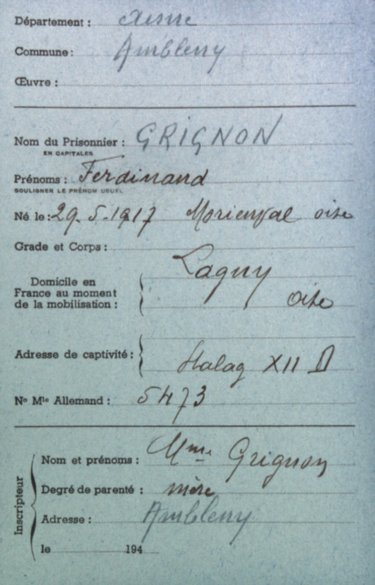 Département : Aisne
Commune : Ambleny
Œuvre :
Nom du Prisonnier : GRIGNON
EN CAPITALES
Prénoms : Ferdinand
SOULIGNER LE PRÉNOM USUEL
Né le : 29.5.1917 Morienval oise
Grade et Corps :
Lagny
Domicile en
France au moment
de la mobilisation :
oise
Adresse de captivité :
Stalag XII D
No Mle Allemand : 5473
Inscripteur
Nom et prénoms : Mme Grignon
Degré de parenté : mère
Adresse : Ambleny
le 194